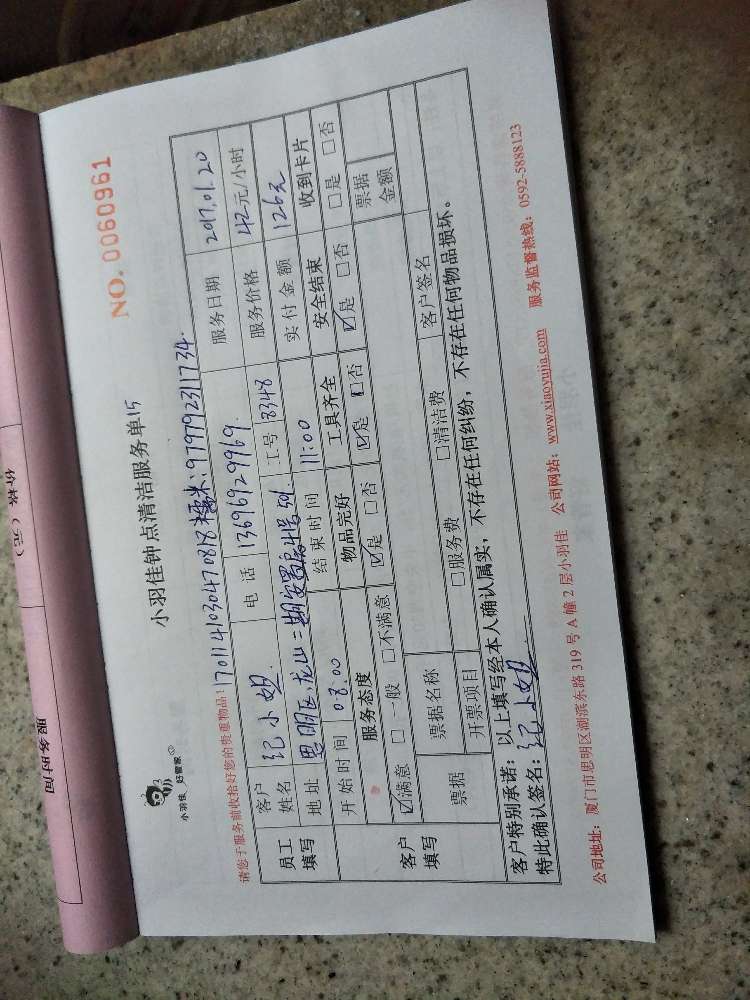 小羽佳 好管家
小羽佳钟点清洁服务单15
NO. 0060961
请您于服务前收拾好您的贵重物品! 17011410304470818糯米:979792311734.
员工填写 客户姓名 纪小姐 电话 13696929969. 服务日期 2017.01.20
地址 思明区,龙山二 工号 8348 服务价格 42元/小时
开始时间 08:00 结束时间 11:00 实付金额 126元
客户填写 服务态度 物品完好 工具齐全 安全结束 收到卡片
☑满意 □一般 □不满意 ☑是 □否 ☑是 □否 ☑是 □否 □是 □否
票据 票据名称 票据金额
开票项目 □服务费 □清洁费 客户签名
客户特别承诺:以上填写经本人确认属实,不存在任何纠纷,不存在任何物品损坏。
特此确认签名:纪小姐
公司地址:厦门市思明区湖滨东路 319 号 A 幢 2 层小羽佳 公司网站:www.xiaoyujia.com 服务监督热线:0592-5888123
服务时间
价格(元)